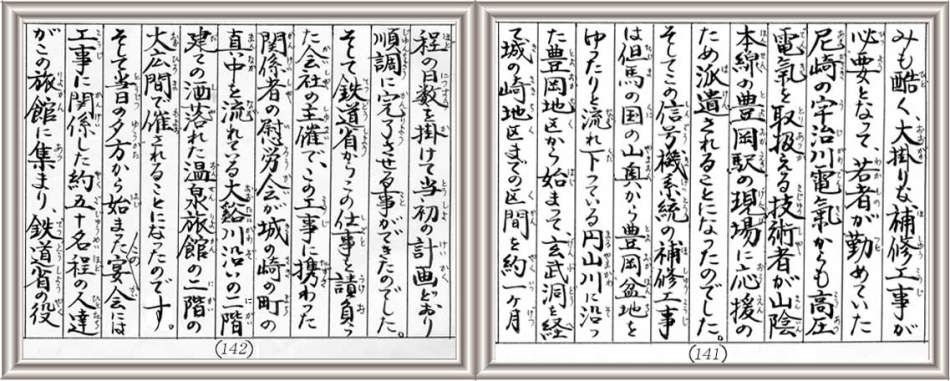 みも酷く、大掛りな補修工事が
必要となって、若者が勤めていた
尼崎の宇治川電氣からも高圧
電氣を取扱える技術者が山陰
本線の豊岡駅の現場に応援の
ため派遣されることになったのでした。
そしてこの信号機系統の補修工事
は但馬の国の山奥から豊岡盆地を
ゆったりと流れ下っている円山川に沿っ
た豊岡地区から始まって、玄武洞を経
て城の崎地区までの区間を約一ヶ月
(141)
程の日数を掛けて当初の計画どおり
順調に完了させる事ができたのでした。
そして鉄道省からこの仕事を請負っ
た会社の主催で、この工事に携わった
関係者の慰労会が城の崎の町の
真中を流れている大谿川沿いの二階
建ての洒落れた温泉旅館の二階の
大広間で催されることになったのです。
そして当日の夕方から始まったこの宴会には
工事に関係した約五十名程の人達
がこの旅館に集まり、鉄道省の役
(142)